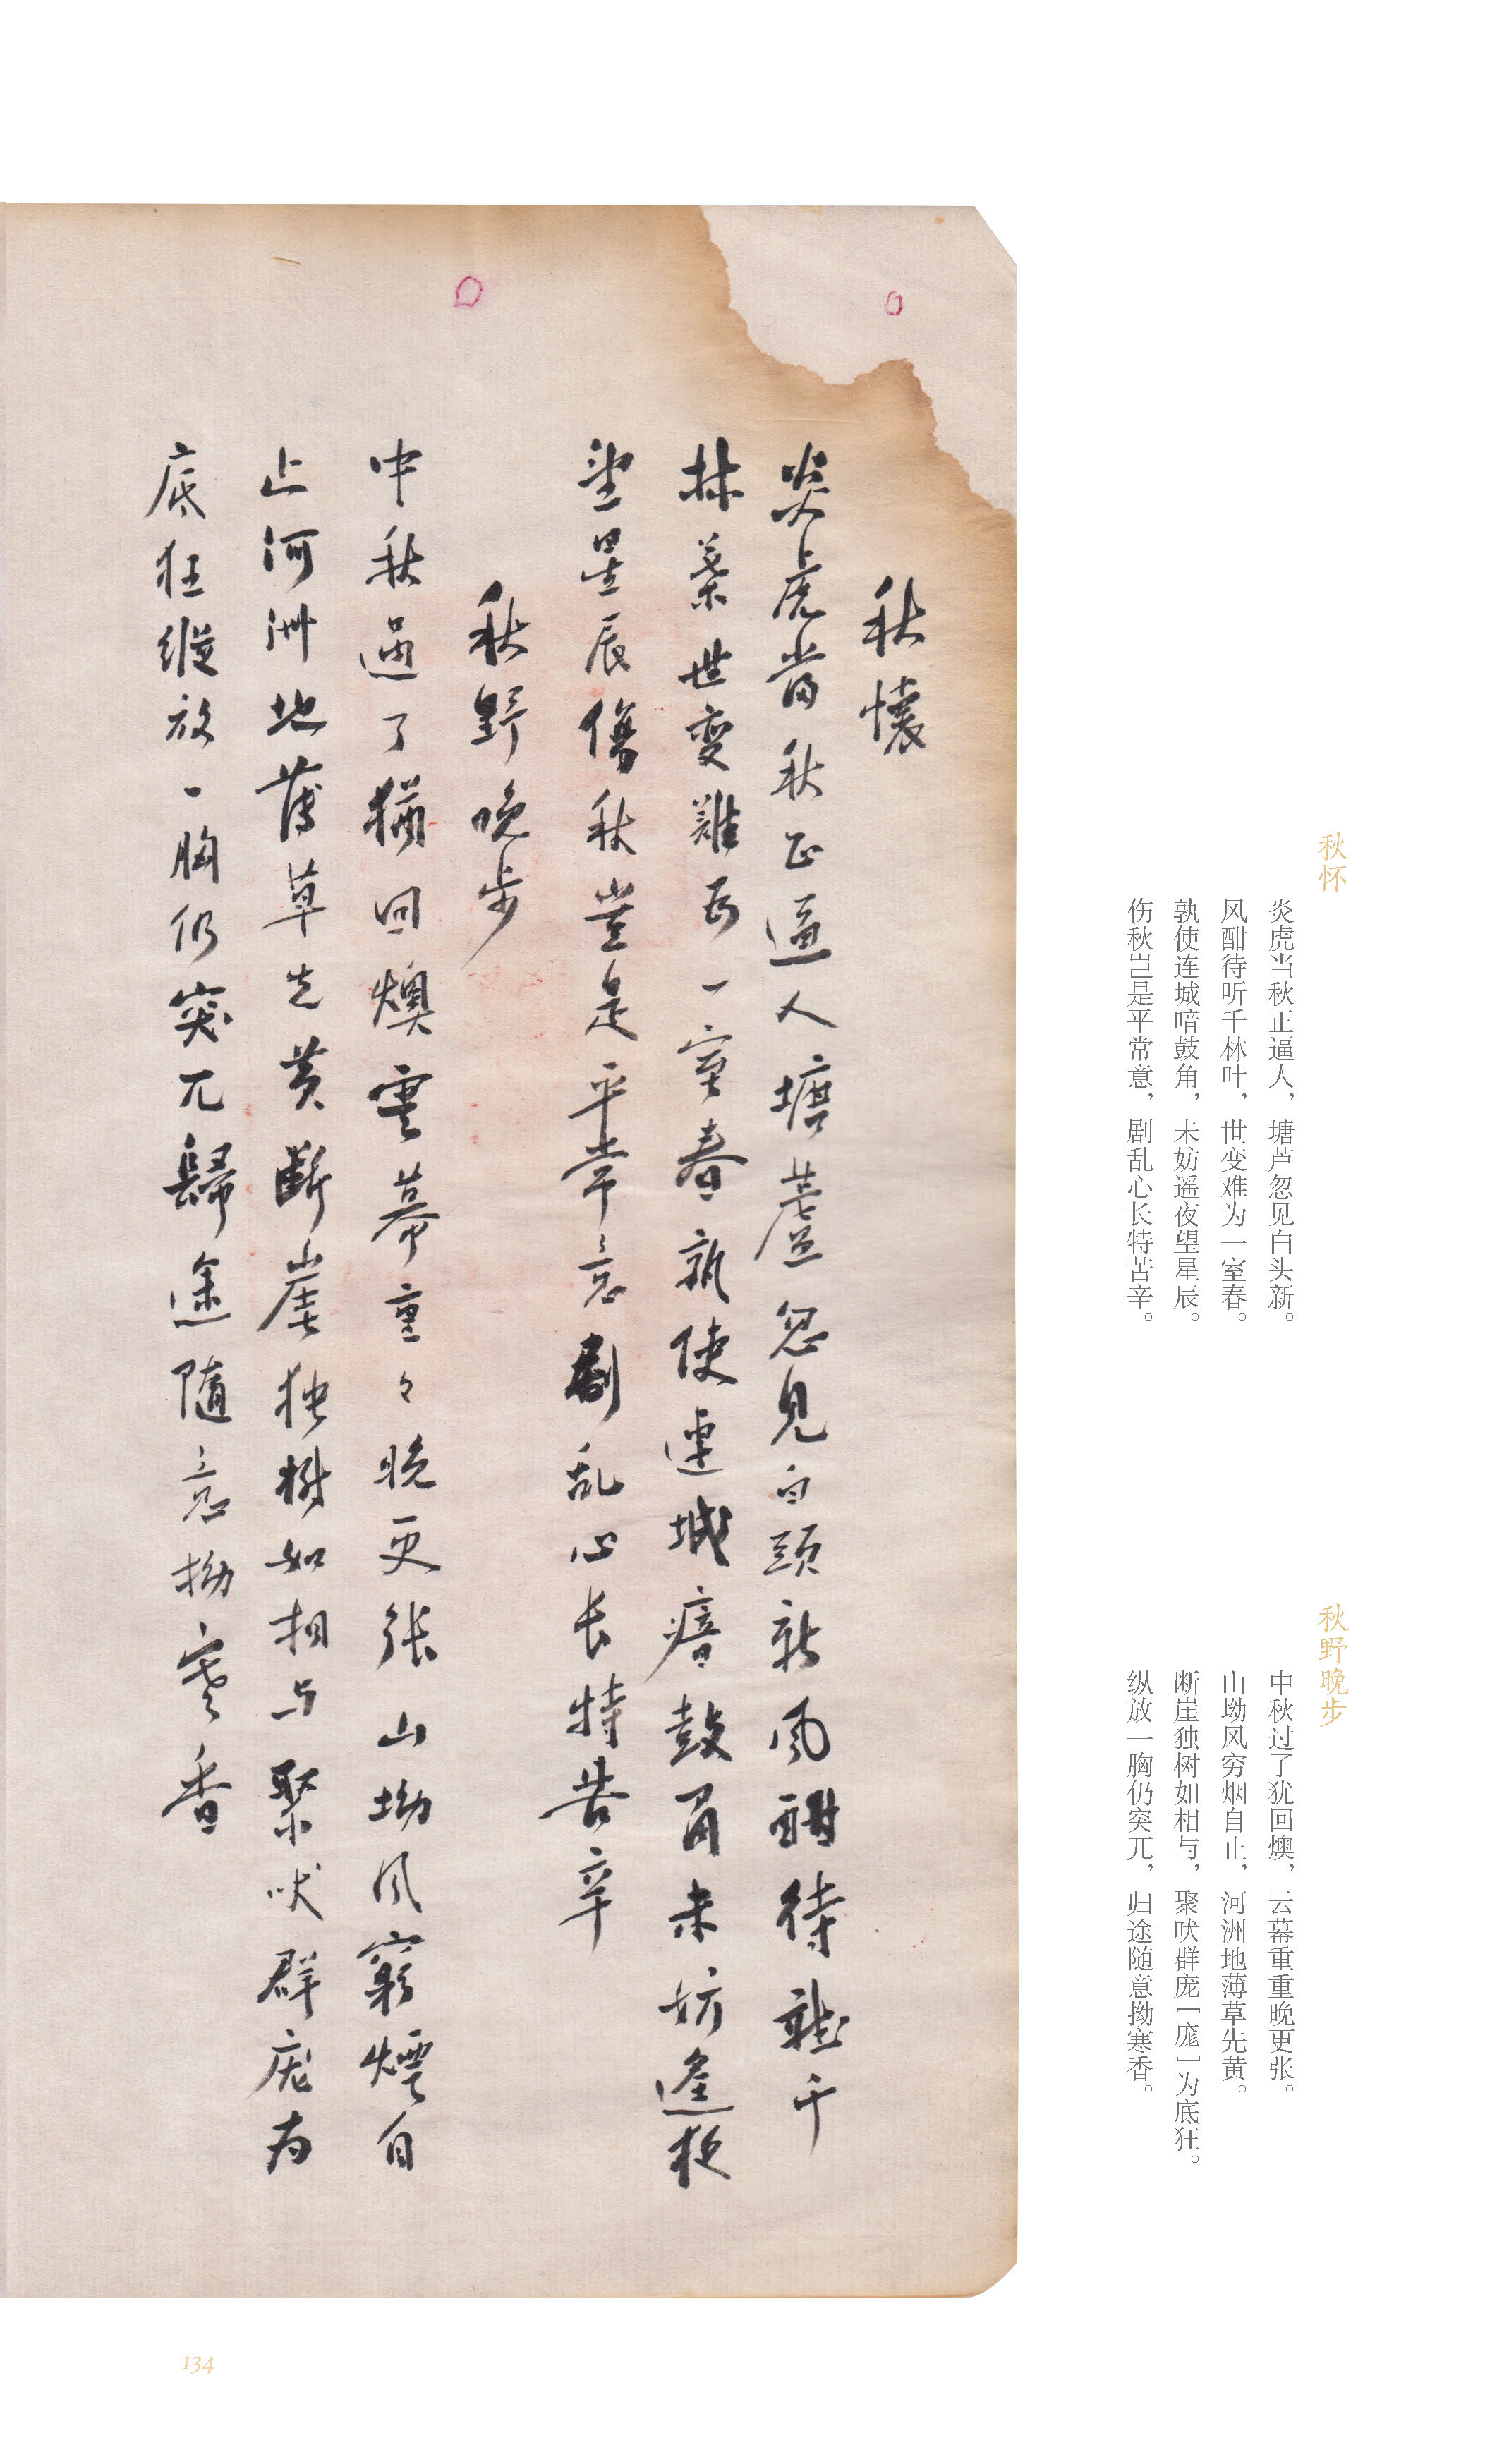 秋怀
炎虎当秋正逼人，塘芦忽见白头新。
风酣待听千林叶，世变难为一室春。
孰使连城喑鼓角，未妨遥夜望星辰。
伤秋岂是平常意，剧乱心长特苦辛。
秋野晚步
中秋过了犹回燠，云幕重重晚更张。
山坳风穷烟自止，河洲地薄草先黄。
断崖独树如相与，聚吠群庞[庬]为底狂。
纵放一胸仍突兀，归途随意拗寒香。
秋懷
炎虎當秋正逼人塘蘆忽見白頭新風酣待聽千
林葉世变難为一室春孰使連城瘖鼓角未妨遙夜
望星辰傷秋豈是平常意劇乱心长特苦辛
秋野晚步
中秋過了猶回燠雲幕重々晚更张山坳风窮煙自
止河洲地薄草先黄斷崖独樹如相与聚吠群庬为
底狂縱放一胸仍突兀歸途隨意拗寒香
134